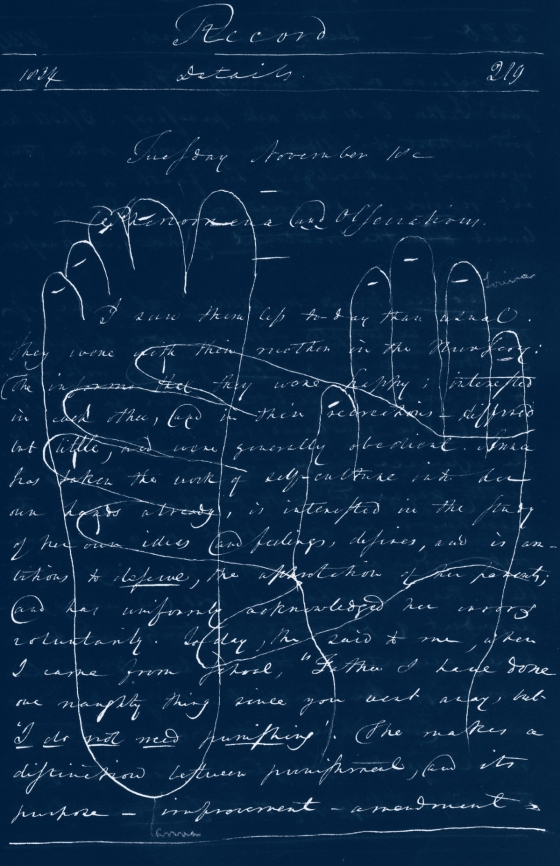 Record
1034 Details. 219
Tuesday November 10
Phenomena and Observations.
Louisa
I saw them less to-day than usual.
They were with their mother in the Nursery:
She informs me that they were happy; interested
in each other, and in their recreations – differed
but little, and were generally obedient. Anna
has taken the work of self-culture into her
own hands already, is interested in the study
of her own ideas and feelings, desires, and is am-
bitious to deserve, the approbation of her parents;
and has uniformly acknowledged her wrong
voluntarily. To day, she said to me, when
I came from School, "Father I have done
one naughty thing since you went away, but
'I do not need punishing'. She makes a
distinction between punishment, and its
purpose – improvement – amendment
Anna